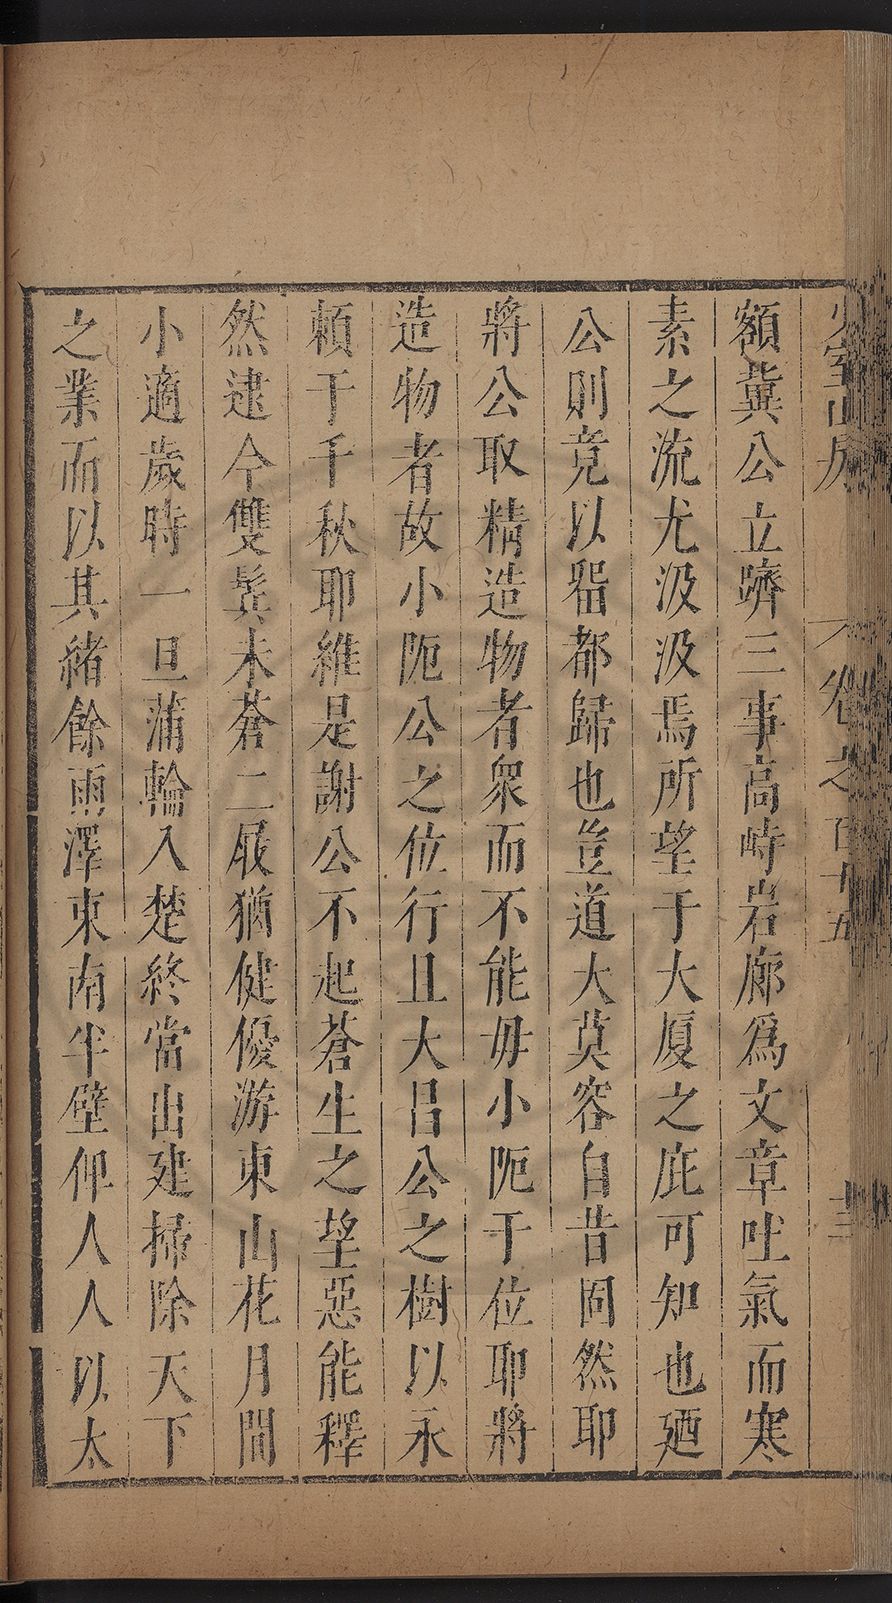 少室山房 卷之百十五 十三
額冀公立躋三事高峙岩廊爲文章吐氣而寒
素之流尤汲汲焉所望于大厦之庇可知也廼
公則竟以留都歸也豈道大莫容自昔固然耶
將公取精造物者衆而不能毋小阨于位耶將
造物者故小阨公之位行且大昌公之樹以永
頼于千秋耶維是謝公不起蒼生之望惡能釋
然逮今雙鬂未蒼二屐猶健優游東山花月間
小適歲時一旦蒲輪入楚終當出建掃除天下
之業而以其緒餘雨澤東南半壁仰人人以太